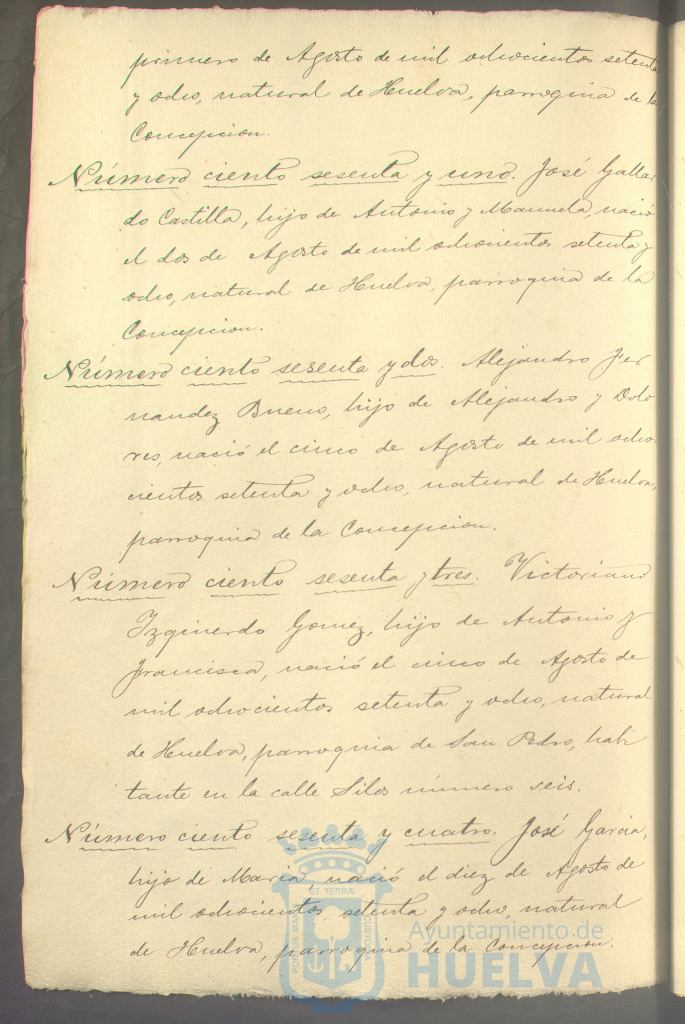 primero de Agosto de mil ochocientos setenta
y ocho, natural de Huelva, parroquia de la
Concepcion.
Número ciento sesenta y uno. José Galla
do Castilla, hijo de Antonio y Manuela, nació
el dos de Agosto de mil ochocientos setenta y
ocho, natural de Huelva, parroquia de la
Concepcion.
Número ciento sesenta y dos. Alejandro Fer
nandez Bueno, hijo de Alejandro y Dolo
res, nació el cinco de Agosto de mil ocho-
cientos setenta y ocho, natural de Huelva,
parroquia de la Concepcion.
Número ciento sesenta y tres. Victoriano
Izquierdo Gomez, hijo de Antonio y
Francisca, nació el cinco de Agosto de
mil ochocientos setenta y ocho, natural
de Huelva, parroquia de San Pedro, habi
tante en la calle Silos número seis.
Número ciento sesenta y cuatro. José Garcia,
hijo de Maria, nació el diez de Agosto de
mil ochocientos setenta y ocho, natural
de Huelva, parroquia de la Concepcion.
PORTUS MARIS ET TERRÆ CUSTODIA
Ayuntamiento de
HUELVA